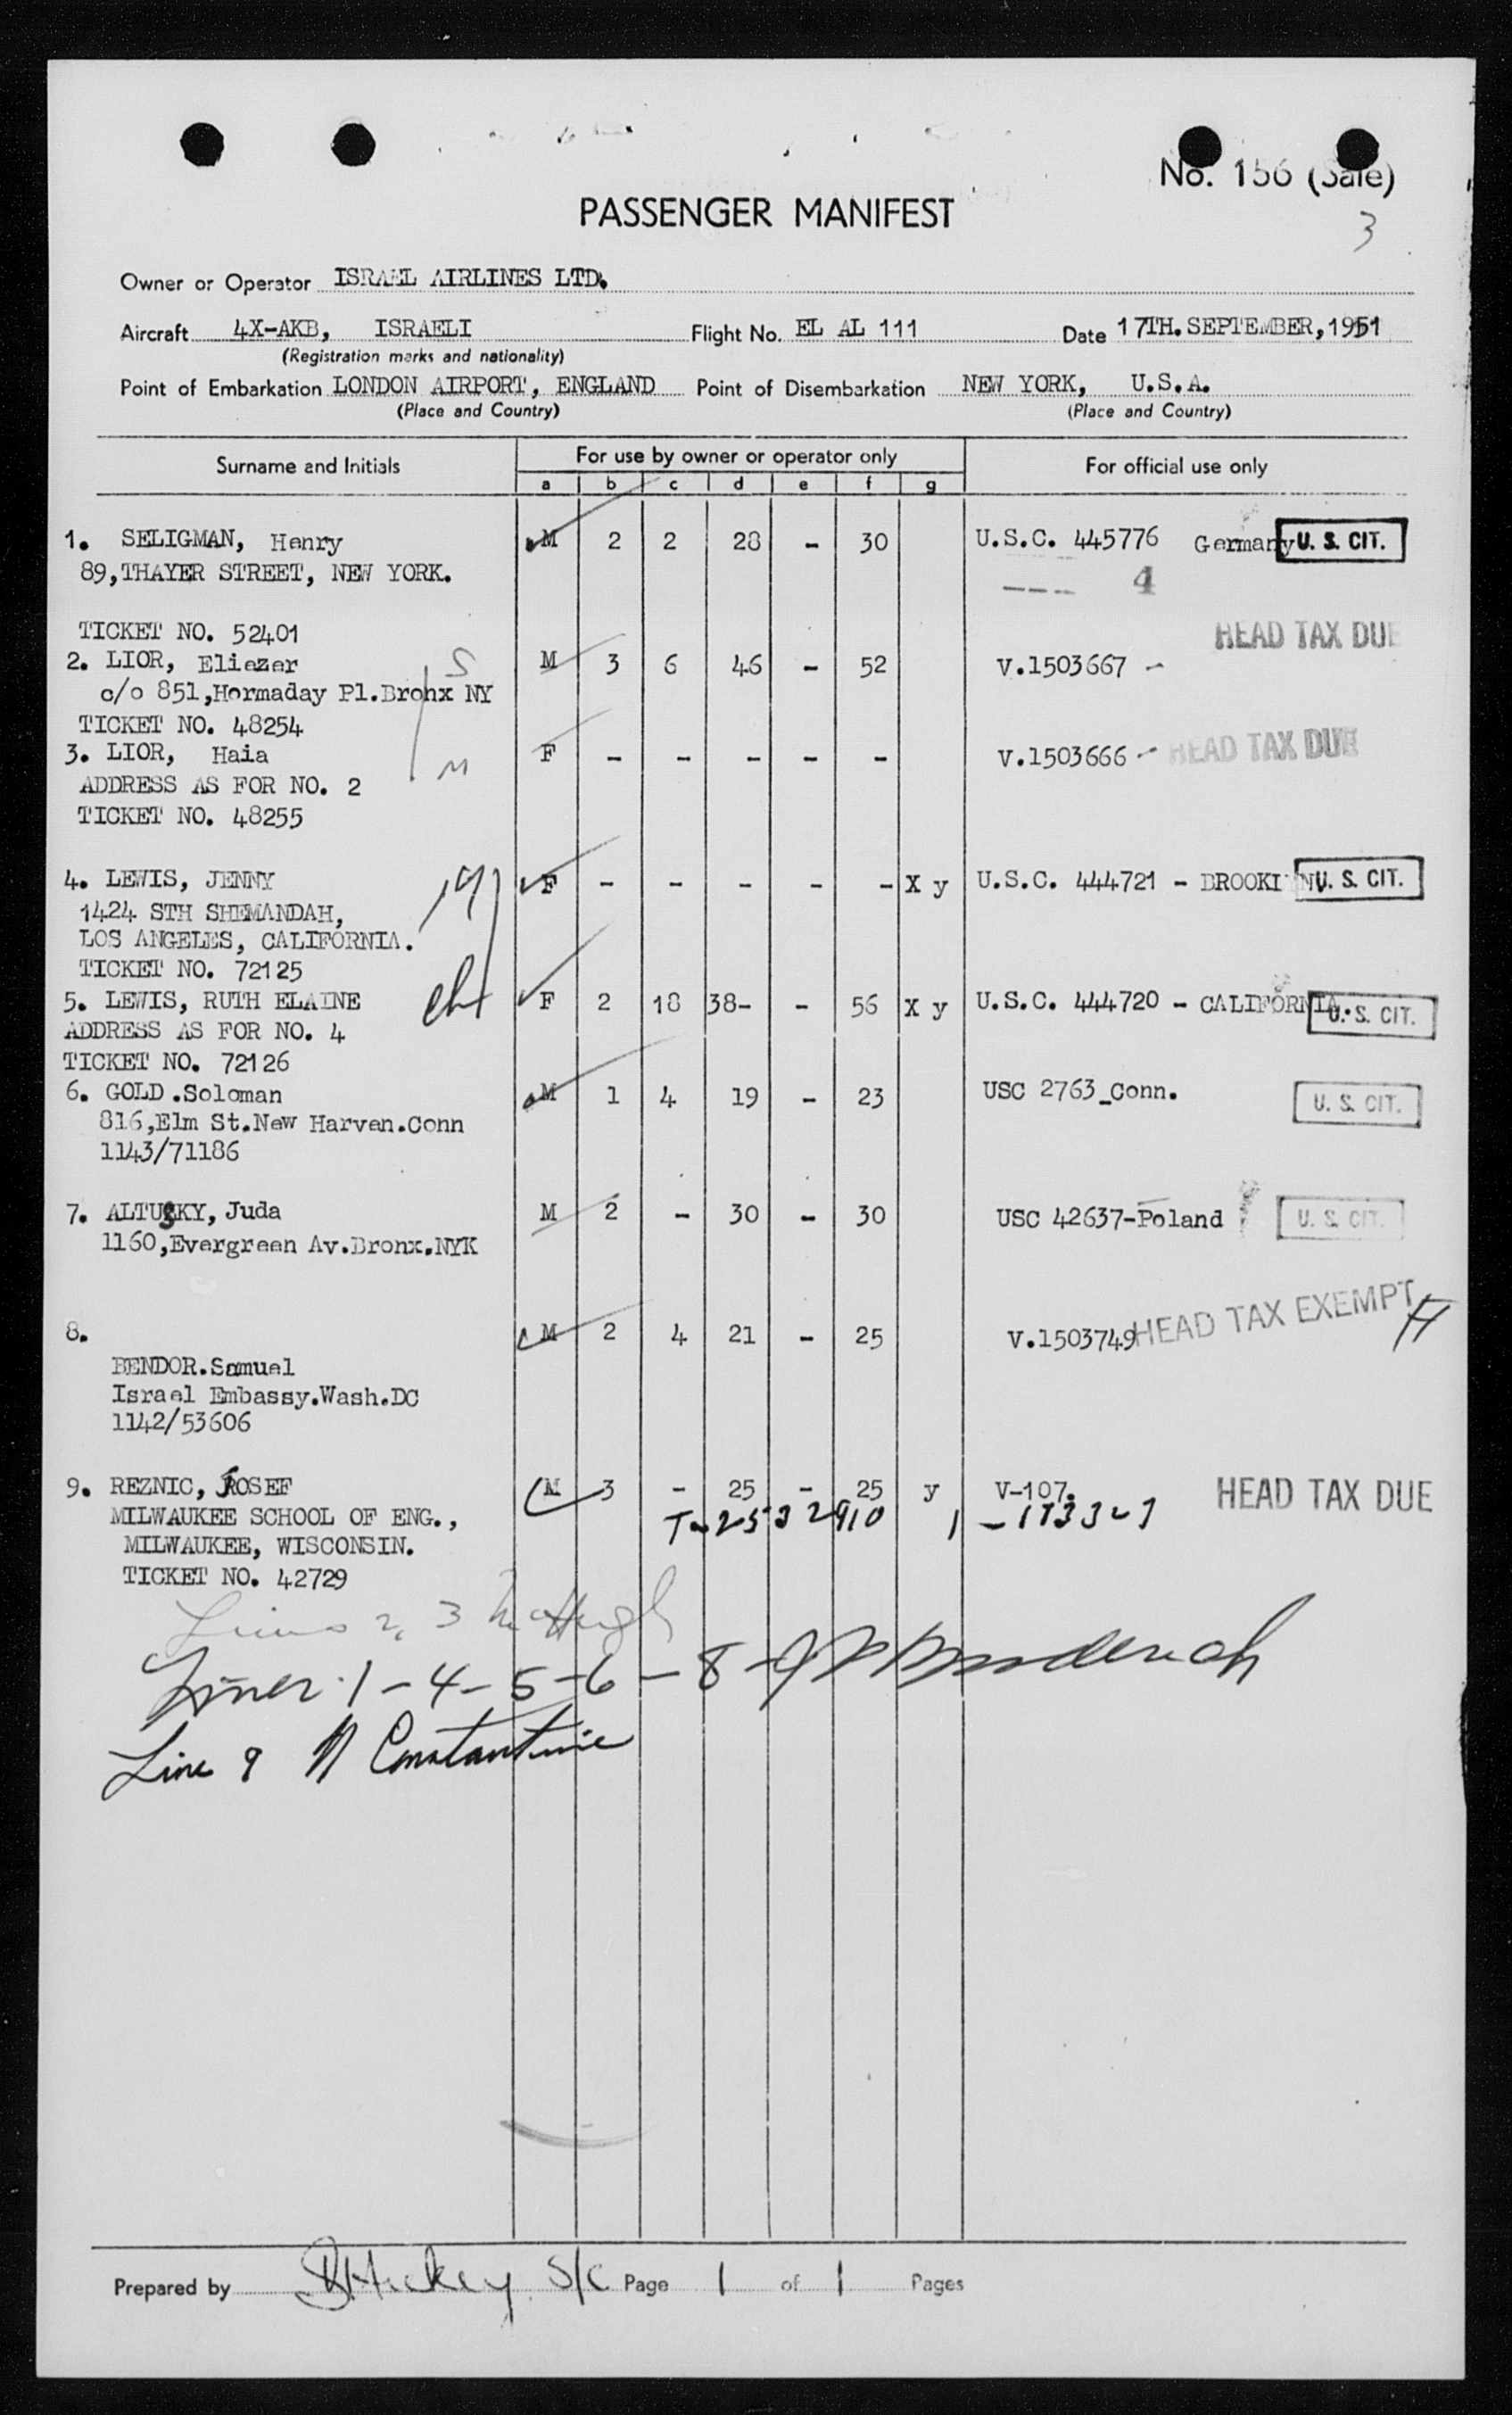 No. 156 (Sale)
PASSENGER MANIFEST
3
Owner or Operator ISRAEL AIRLINES LTD.
Aircraft 4X-AKB, ISRAELI Flight No. EL AL 111 Date 17TH. SEPTEMBER, 1951
(Registration marks and nationality)
Point of Embarkation LONDON AIRPORT, ENGLAND Point of Disembarkation NEW YORK, U.S.A.
(Place and Country) (Place and Country)
Surname and Initials For use by owner or operator only For official use only
a b c d e f g
1. SELIGMAN, Henry M 2 2 28 - 30 U.S.C. 445776 Germany U. S. CIT.
89, THAYER STREET, NEW YORK. ---- 4
TICKET NO. 52401 HEAD TAX DUE
2. LIOR, Eliezer S M 3 6 46 - 52 V.1503667 -
c/o 851, Hormaday Pl. Bronx NY
TICKET NO. 48254
3. LIOR, Haia M F - - - - - V.1503666 - HEAD TAX DUE
ADDRESS AS FOR NO. 2
TICKET NO. 48255
4. LEWIS, JENNY F - - - - - X y U.S.C. 444721 - BROOKLYN U. S. CIT.
1424 STH SHEMANDAH,
LOS ANGELES, CALIFORNIA.
TICKET NO. 72125
5. LEWIS, RUTH ELAINE F 2 18 38- - 56 X y U.S.C. 444720 - CALIFORNIA. U. S. CIT.
ADDRESS AS FOR NO. 4
TICKET NO. 72126
6. GOLD .Soloman M 1 4 19 - 23 USC 2763_Conn. U. S. CIT.
816, Elm St. New Harven. Conn
1143/71186
7. ALTUSKY, Juda M 2 - 30 - 30 USC 42637-Poland U. S. CIT.
1160, Evergreen Av. Bronx. NYK
8. M 2 4 21 - 25 V.1503749 HEAD TAX EXEMPT
BENDOR. Samuel
Israel Embassy. Wash. DC
1142/53606
9. REZNIC, JOSEF M 3 - 25 - 25 y V-107. HEAD TAX DUE
MILWAUKEE SCHOOL OF ENG., T-2532910
MILWAUKEE, WISCONSIN.
TICKET NO. 42729
Lines 2, 3
Lines 1-4-5-6-8
Line 9 Constantine
Prepared by Hickey S/C Page 1 of 1 Pages